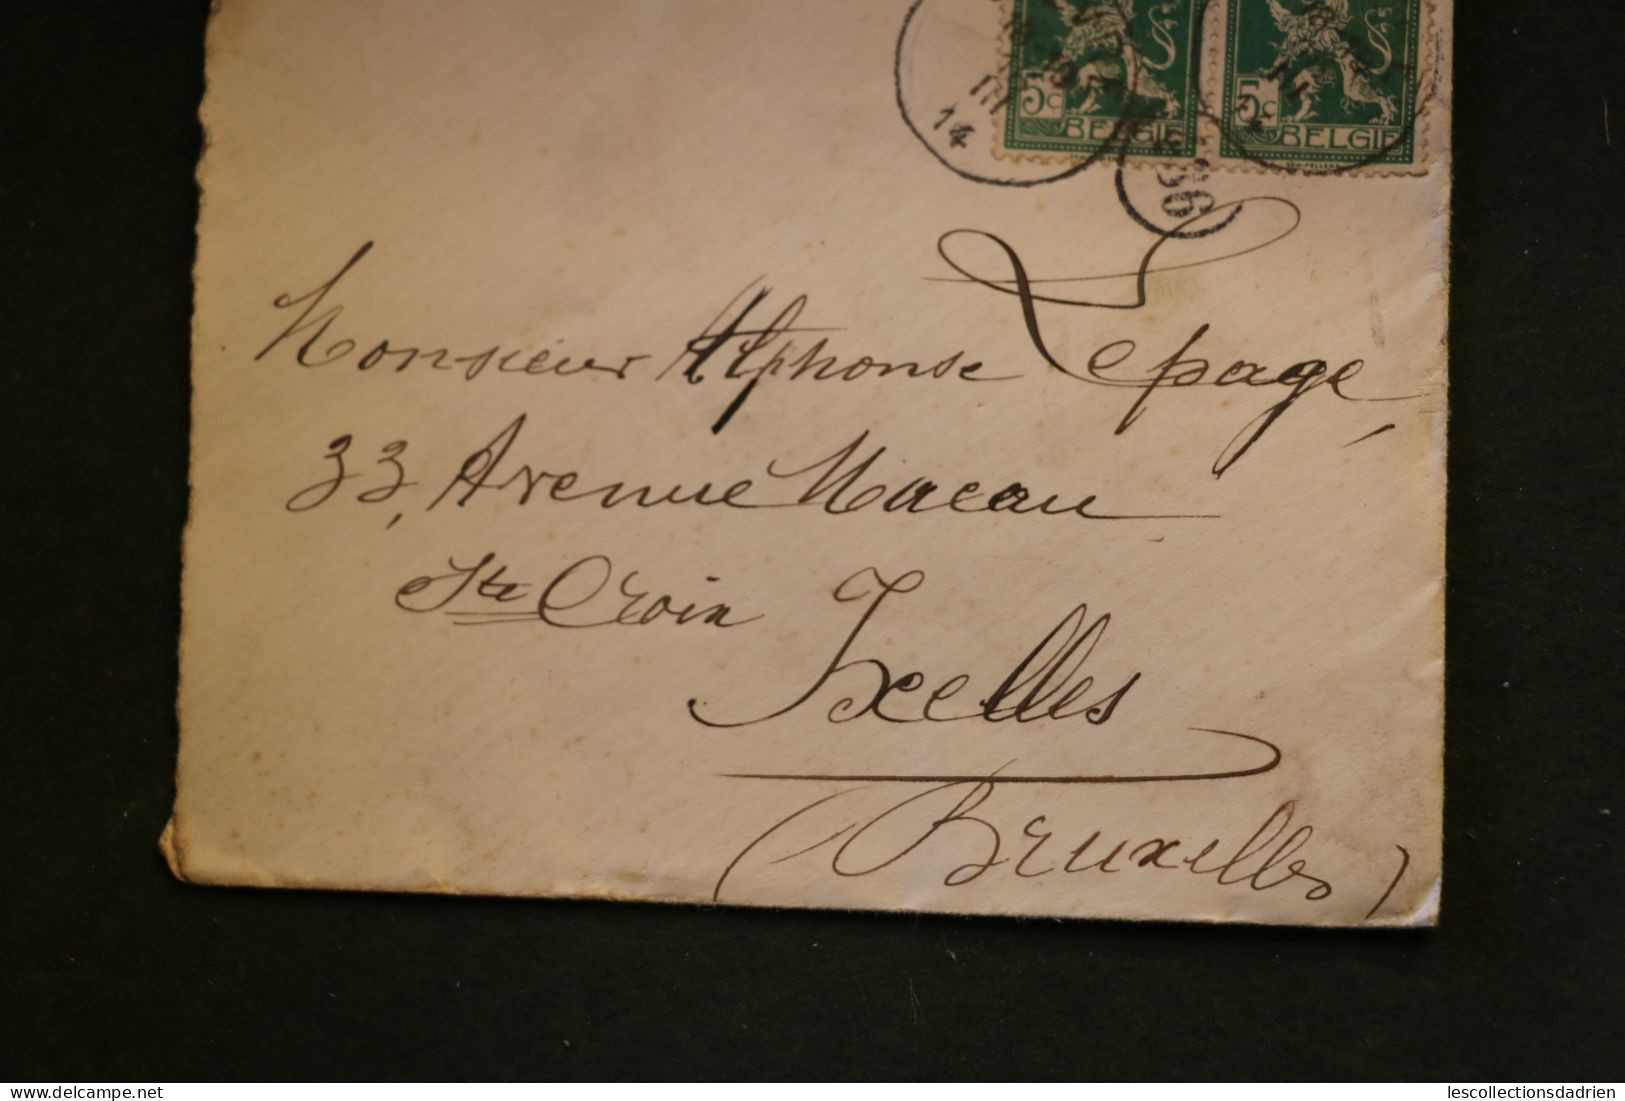 III
14
5c
BELGIE
5c
BELGIE
Monsieur Alphonse Lepage,
33, Avenue Macau
Ste Croix Ixelles
(Bruxelles)
delcampe.net
lescollectionsdadrien